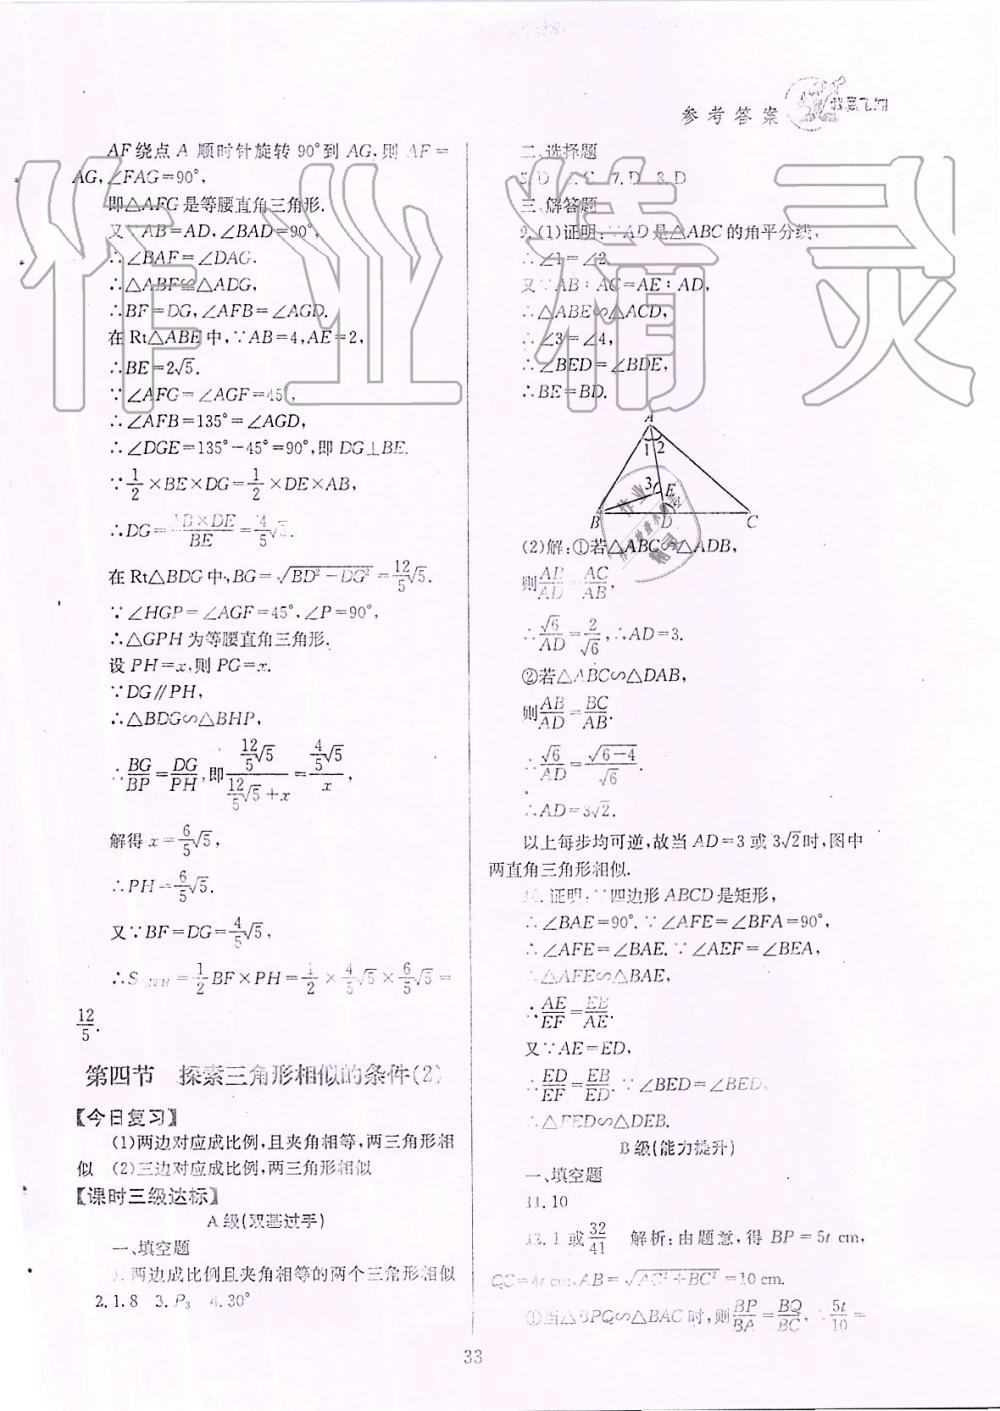 参考答案
AF绕点A顺时针旋转90°到AG,则AF=
AG,∠FAG=90°,
即△AFG是等腰直角三角形.
又∵AB=AD,∠BAD=90°,
∴∠BAF=∠DAG,
∴△ABF≌△ADG,
∴BF=DG,∠AFB=∠AGD.
在Rt△ABE中,∵AB=4,AE=2,
∴BE=2√5.
∵∠AFG=∠AGF=45°,
∴∠AFB=135°=∠AGD,
∴∠DGE=135°-45°=90°,即DG⊥BE.
∵1/2×BE×DG=1/2×DE×AB,
∴DG=AB×DE/BE=4/5√5.
在Rt△BDG中,BG=√(BD²-DG²)=12/5√5.
∵∠HGP=∠AGF=45°,∠P=90°,
∴△GPH为等腰直角三角形.
设PH=x,则PG=x.
∵DG∥PH,
∴△BDG∽△BHP,
∴BG/BP=DG/PH,即(12/5√5)/(12/5√5+x)=(4/5√5)/x,
解得x=6/5√5,
∴PH=6/5√5.
又∵BF=DG=4/5√5,
∴S=1/2BF×PH=1/2×4/5√5×6/5√5=
12/5.
第四节 探索三角形相似的条件(2)
【今日复习】
(1)两边对应成比例,且夹角相等,两三角形相
似 (2)三边对应成比例,两三角形相似
【课时三级达标】
A级(双基过手)
一、填空题
1.两边成比例且夹角相等的两个三角形相似
2.1.8 3.P₃ 4.30°
二、选择题
5.D 6.C 7.D 8.D
三、解答题
9.(1)证明:∵AD是△ABC的角平分线,
∴∠1=∠2.
又∵AB∶AC=AE∶AD,
∴△ABE∽△ACD,
∴∠3=∠4,
∴∠BED=∠BDE,
∴BE=BD.
A
1 2
3 E
B D C
(2)解:①若△ABC∽△ADB,
则AB/AD=AC/AB,
∴√6/AD=2/√6,∴AD=3.
②若△ABC∽△DAB,
则AB/AD=BC/AB.
∴√6/AD=√(6-4)/√6.
∴AD=3√2.
以上每步均可逆,故当AD=3或3√2时,图中
两直角三角形相似.
10.证明:∵四边形ABCD是矩形,
∴∠BAE=90°.∵∠AFE=∠BFA=90°,
∴∠AFE=∠BAE.∵∠AEF=∠BEA,
∴△AFE∽△BAE,
∴AE/EF=EB/AE.
又∵AE=ED,
∴ED/EF=EB/ED.∵∠BED=∠BED,
∴△FED∽△DEB.
B级(能力提升)
一、填空题
11.10
12.1或32/41 解析:由题意,得BP=5t cm,
QC=4t cm,AB=√(AC²+BC²)=10 cm.
①当△BPQ∽△BAC时,则BP/BA=BQ/BC,∴5t/10=
33
作业精灵